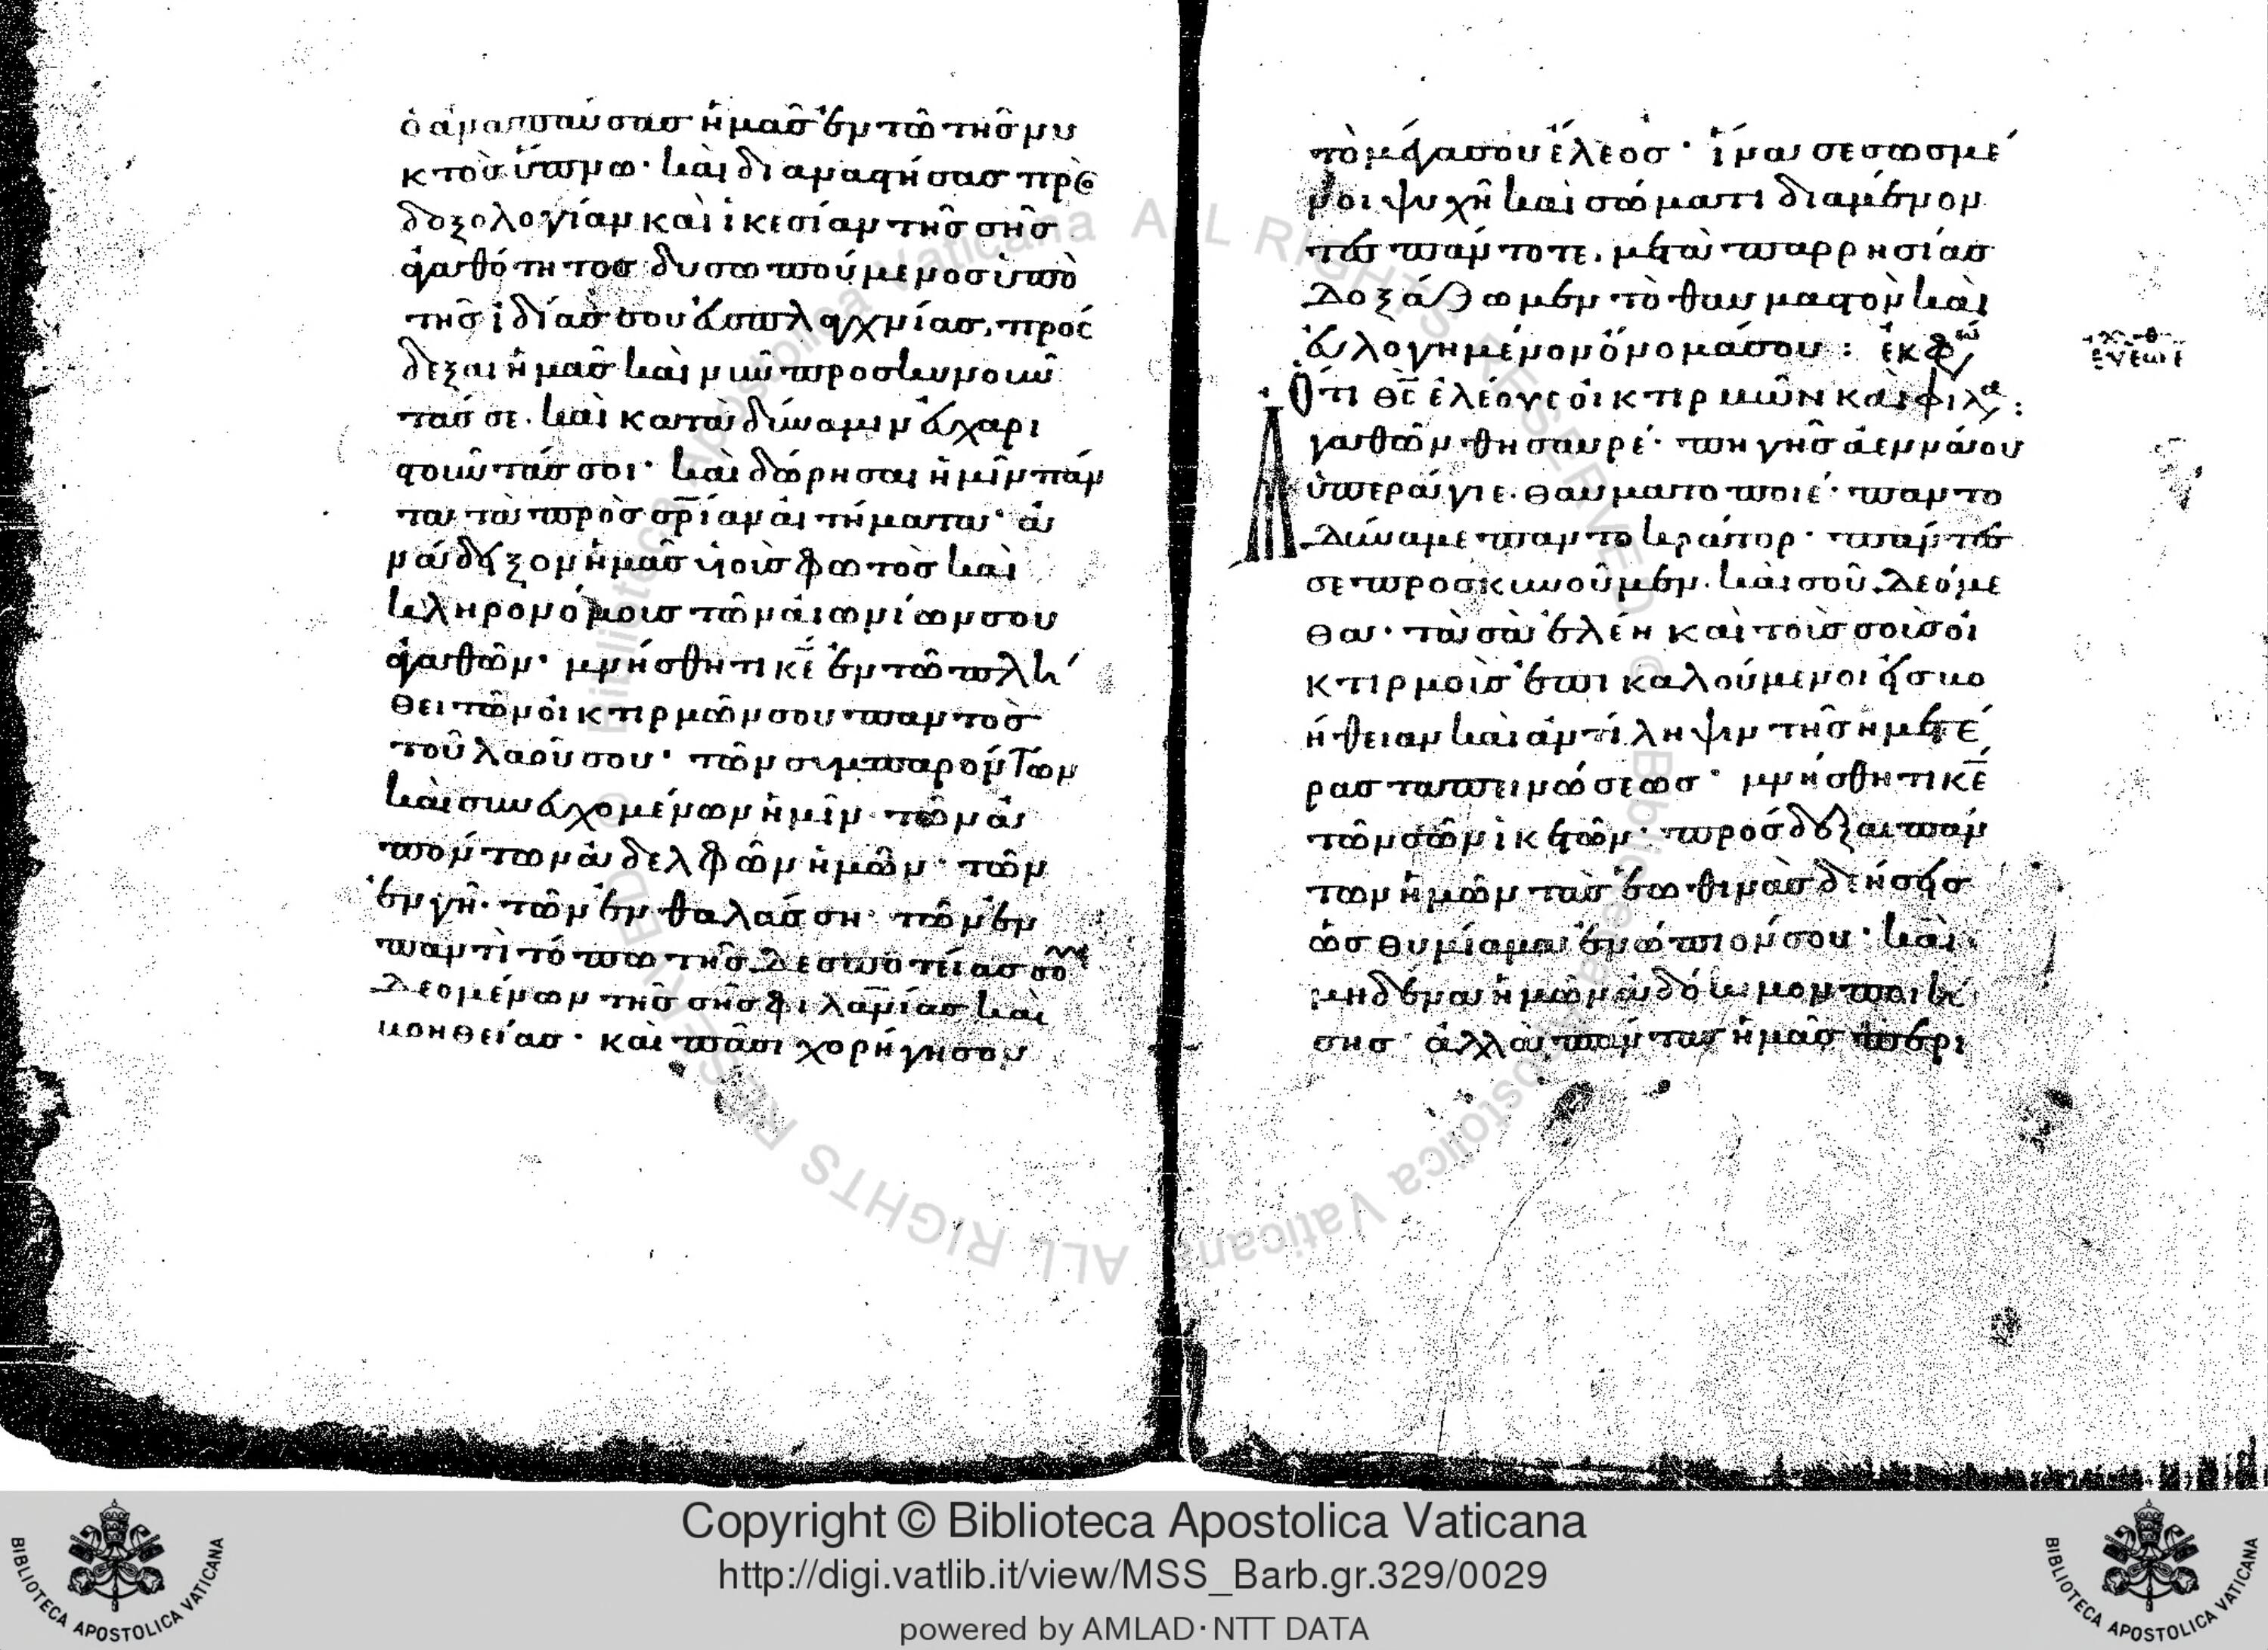 ὁ ἀναπαύσας ἡμᾶς ἐν τῶ τῆς νυ
κτὸς ὕπνω· καὶ διαναστήσας πρὸς
δοξολογίαν καὶ ἱκεσίαν τῆς σῆς
ἀγαθότητος δυσωπούμενος ὑπὸ
τῆς ἰδίας σου εὐσπλαγχνίας, πρόσ
δεξαι ἡμᾶς καὶ νῦν προσκυνοῦν
τάς σε. καὶ κατὰ δύναμιν εὐχαρι
στοῦντάς σοι· καὶ δώρησαι ἡμῖν πάν
τα τὰ πρὸς σ̅ρ̅ίαν αἰτήματα· ἀ
νάδειξον ἡμᾶς υἱοὺς φωτὸς καὶ
κληρονόμους τῶν αἰωνίων σου
ἀγαθῶν· μνήσθητι κ̅ε̅ ἐν τῶ πλή
θει τῶν οἰκτιρμῶν σου παντὸς
τοῦ λαοῦ σου· τῶν συμπαρόντων
καὶ συνευχομένων ἡμῖν· τῶν ἀ
πόντων ἀδελφῶν ἡμῶν· τῶν
ἐν γῆ· τῶν ἐν θαλάσση· τῶν ἐν
παντὶ τόπω τῆς δεσποτείας σου
δεομένων τῆς σῆς φιλα̅ν̅ίας καὶ
βοηθείας· καὶ πᾶσι χορήγησον
τὸ μέγα σου ἔλεος· ἵνα σεσωσμέ
νοι ψυχῆ καὶ σώματι διαμένον
τες πάντοτε, μετὰ παρρησίας
δοξάζωμεν τὸ θαυμαστὸν καὶ
εὐλογημένον ὄνομά σου: ἐκφώ
Ὅτι θ̅ς̅ ἐλέους οἰκτιρμῶν καὶ φιλα:
Ἀγαθῶν θησαυρέ· πηγῆς ἀεννάου
ὑπεράγιε. θαυματοποιέ· παντο
δύναμε παντοκράτορ· πάντες
σε προσκυνοῦμεν. καὶ σοῦ δεόμε
θα· τὰ σὰ ἐλέη καὶ τοὺς σοὺς οἰ
κτιρμοὺς ἐπικαλούμενοι εἰς βο
ήθειαν καὶ ἀντίληψιν τῆς ἡμετέ
ρας ταπεινώσεως· μνήσθητι κ̅ε̅
τῶν σῶν ἱκετῶν· πρόσδεξαι πάν
των ἡμῶν τὰς ἑωθινὰς δεήσεις
ὡς θυμίαμα ἐνώπιόν σου· καὶ
μηδένα ἡμῶν ἀδόκιμον ποιή
σης· ἀλλὰ πάντας ἡμᾶς περι
Copyright © Biblioteca Apostolica Vaticana
http://digi.vatlib.it/view/MSS_Barb.gr.329/0029
powered by AMLAD·NTT DATA
BIBLIOTECA APOSTOLICA VATICANA
BIBLIOTECA APOSTOLICA VATICANA